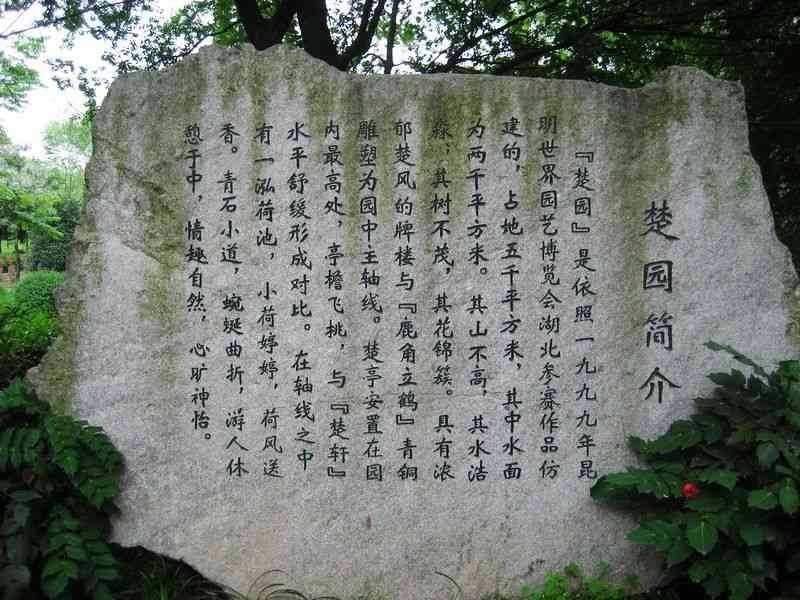 楚园简介
『楚园』是依照一九九九年昆
明世界园艺博览会湖北参赛作品仿
建的，占地五千平方米，其中水面
为两千平方米。其山不高，其水浩
淼；其树不茂，其花锦簇。具有浓
郁楚风的牌楼与『鹿角立鹤』青铜
雕塑为园中主轴线。楚亭安置在园
内最高处，亭檐飞桃，与『楚轩』
水平舒缓形成对比。在轴线之中
有一泓荷池，小荷婷婷，荷风送
香。青石小道，蜿蜒曲折，游人休
憩于中，情趣自然，心旷神怡。